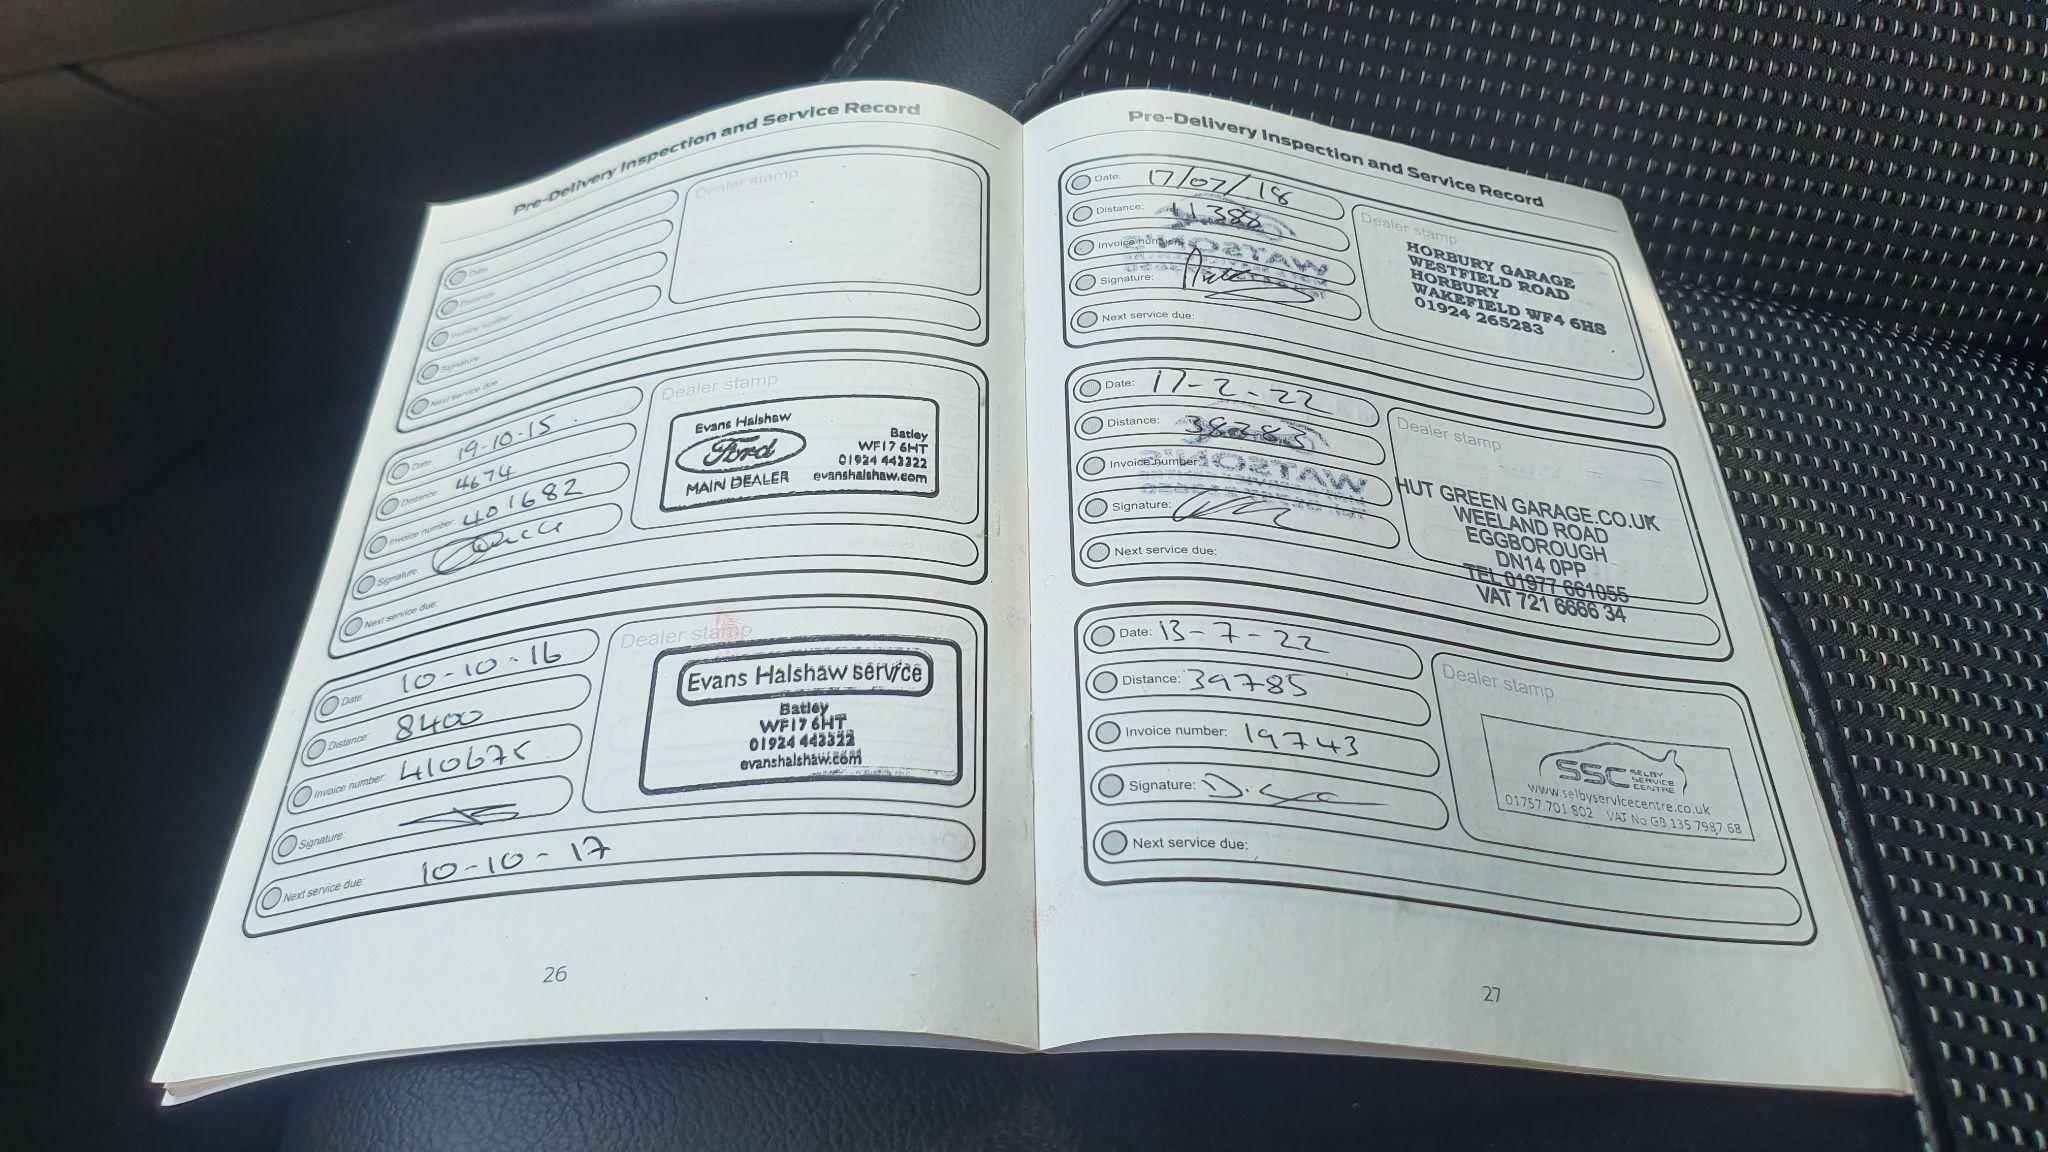 Pre-Delivery Inspection and Service Record
Date
Distance
Invoice number
Signature
Next service due
Dealer stamp
Date: 19-10-15
Distance: 4674
Invoice number: 401682
Signature
Next service due:
Dealer stamp
Evans Halshaw
Ford
MAIN DEALER
Batley
WF17 6HT
01924 443322
evanshalshaw.com
Date: 10-10-16
Distance: 8400
Invoice number:
Signature:
Next service due: 10-10-17
Dealer stamp
Evans Halshaw service
Batley
WF17 6HT
01924 443322
evanshalshaw.com
26
Pre-Delivery Inspection and Service Record
Date: 17/07/18
Distance:
Invoice number:
Signature:
Next service due:
Dealer stamp
HORBURY GARAGE
WESTFIELD ROAD
HORBURY
WAKEFIELD WF4 6HS
01924 265283
WATSON'S
Date: 17-2-22
Distance:
Invoice number:
Signature:
Next service due:
Dealer stamp
HUT GREEN GARAGE.CO.UK
WEELAND ROAD
EGGBOROUGH
DN14 0PP
TEL 01977 661055
VAT 721 6666 34
WATSON'S
Date: 13-7-22
Distance: 39785
Invoice number: 19743
Signature:
Next service due:
Dealer stamp
SSC SELBY SERVICE CENTRE
www.selbyservicecentre.co.uk
01757 701 802 VAT No GB 135 7987 68
27